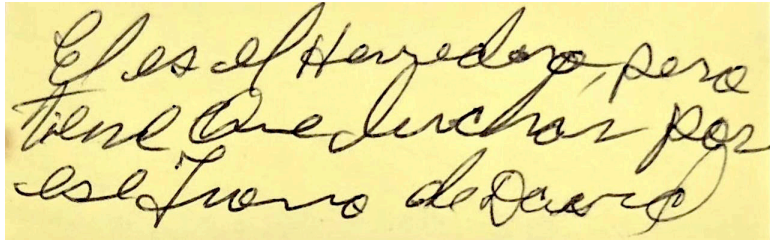 El es el Heredero, pero
tiene que luchar por
ese Trono de David